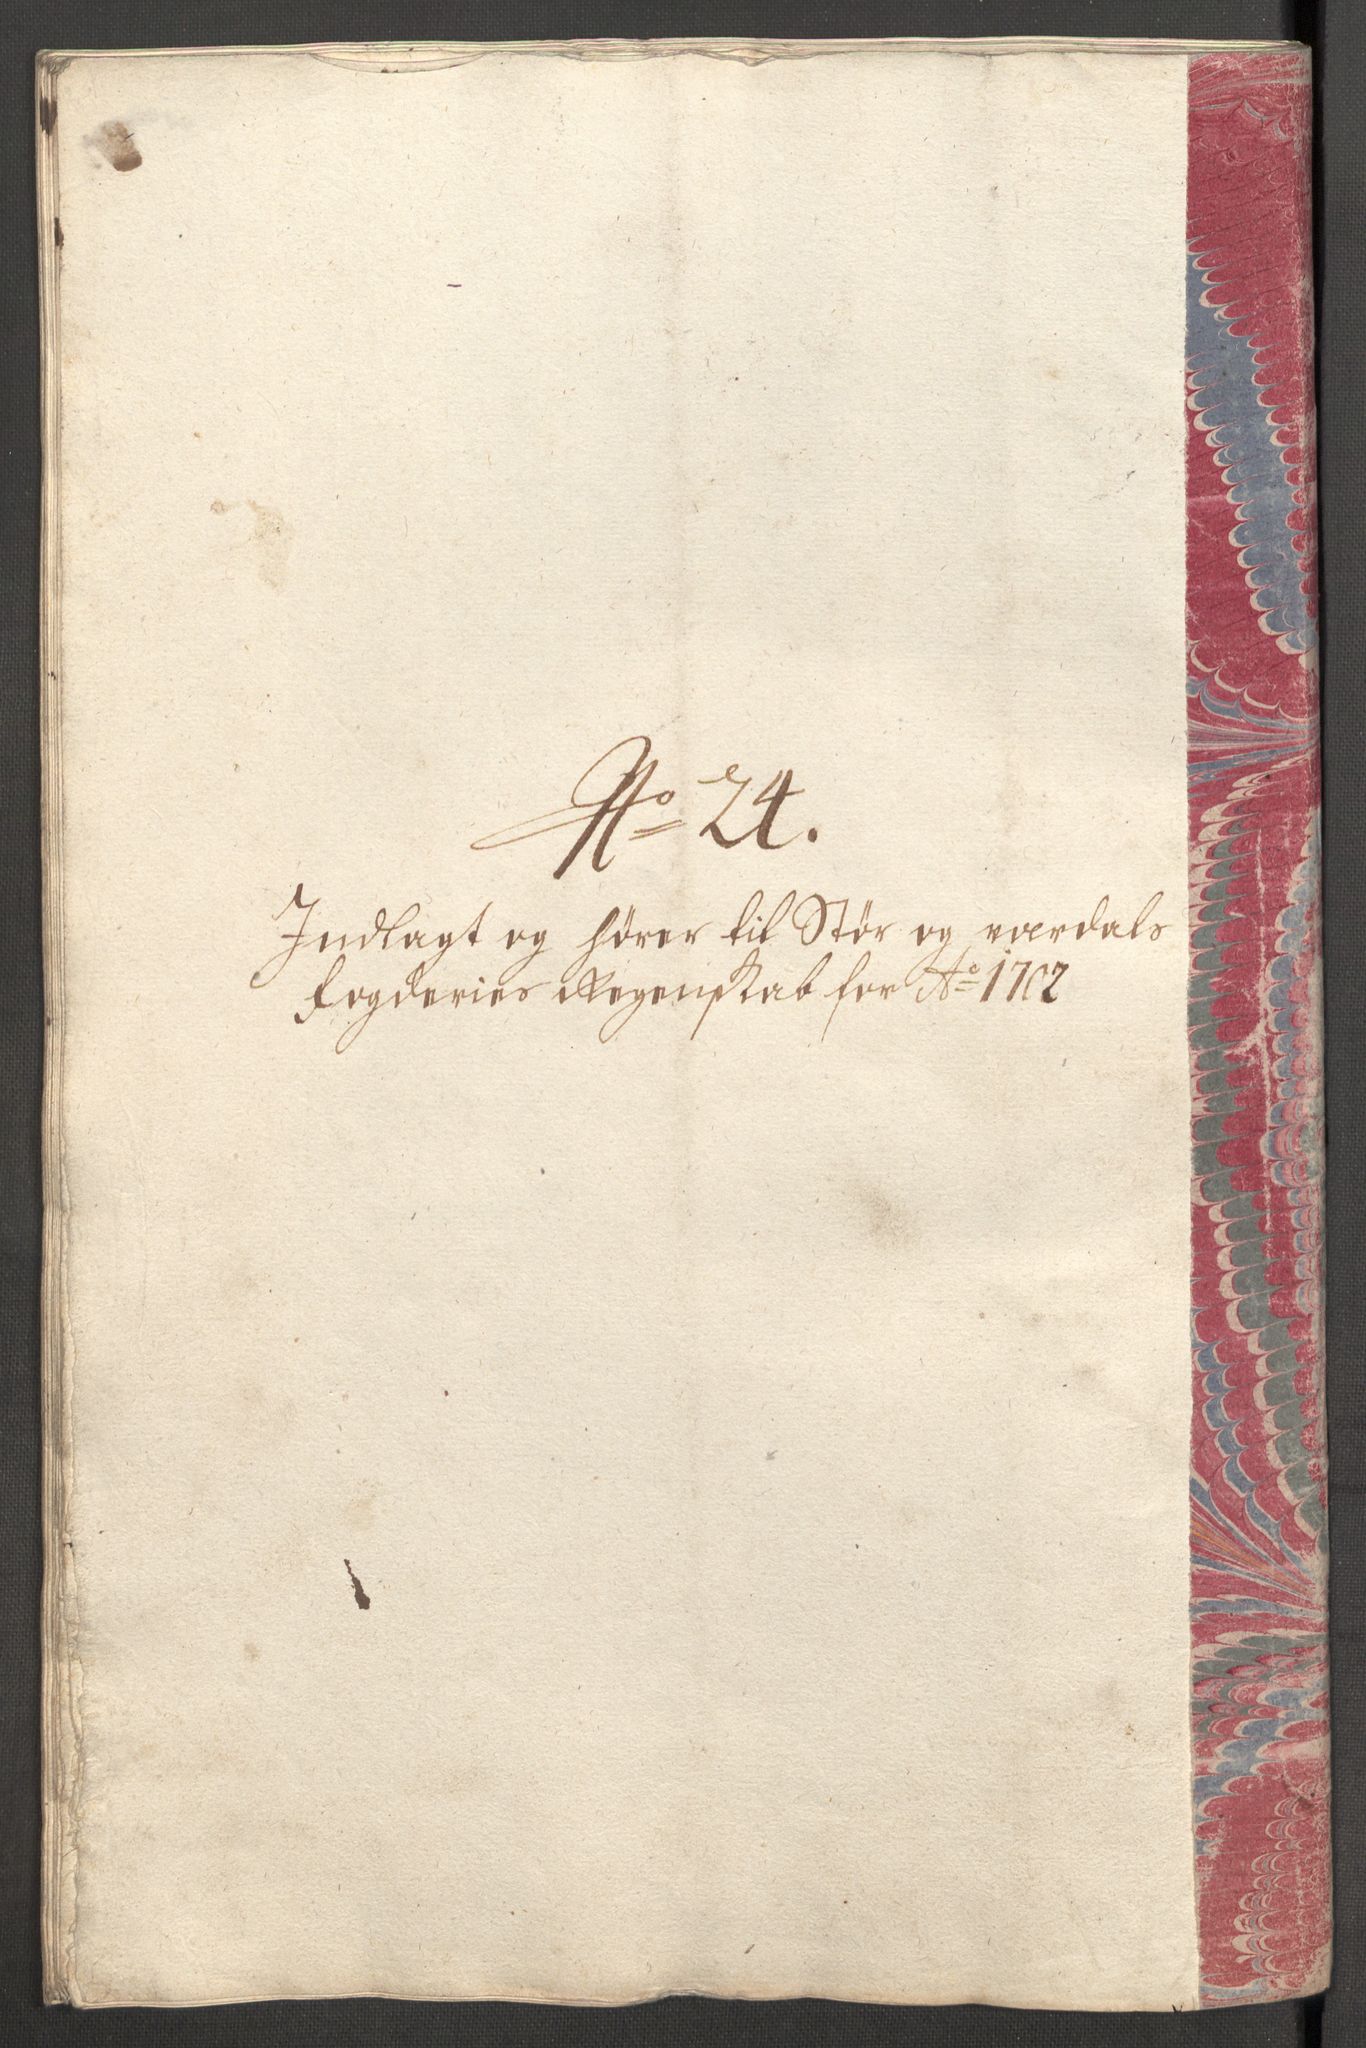 No 24.
Indlagt og hører til Stør og værdals
fogderies Regenskab for Ao 1702